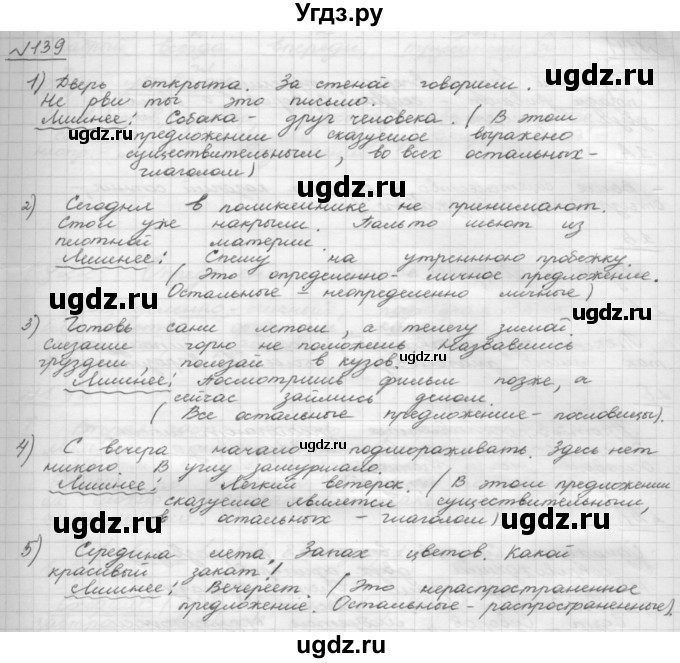 Угдз.ру
№139
1) Дверь открыта. За стеной говорили.
Не рви ты это письмо.
Лишнее: Собака - друг человека. (В этом
предложении сказуемое выражено
существительным, во всех остальных -
глаголом)
2) Сегодня в поликлинике не принимают.
Стол уже накрыли. Пальто шьют из
плотной материи.
Лишнее: Спешу на утреннюю пробежку.
(Это определенно-личное предложение.
Остальные - неопределенно личные)
3) Готовь сани летом, а телегу зимой.
Слезами горю не поможешь. Назвавшись
груздем, полезай в кузов.
Лишнее: Посмотришь фильм позже, а
сейчас займись делом.
(Все остальные предложение - пословицы).
4) С вечера начало подмораживать. Здесь нет
никого. В углу зашуршало.
Лишнее: Легкий ветерок. (В этом предложении
сказуемое является существительным,
в остальных - глаголом)
5) Середина лета. Запах цветов. Какой
красивый закат!
Лишнее: Вечереет. (Это нераспространенное
предложение. Остальные - распространенные).
ugdz.ru
ugdz.ru
ugdz.ru
ugdz.ru
ugdz.ru
ugdz.ru
ugdz.ru
ugdz.ru
ugdz.ru
ugdz.ru
ugdz.ru
ugdz.ru
ugdz.ru
ugdz.ru